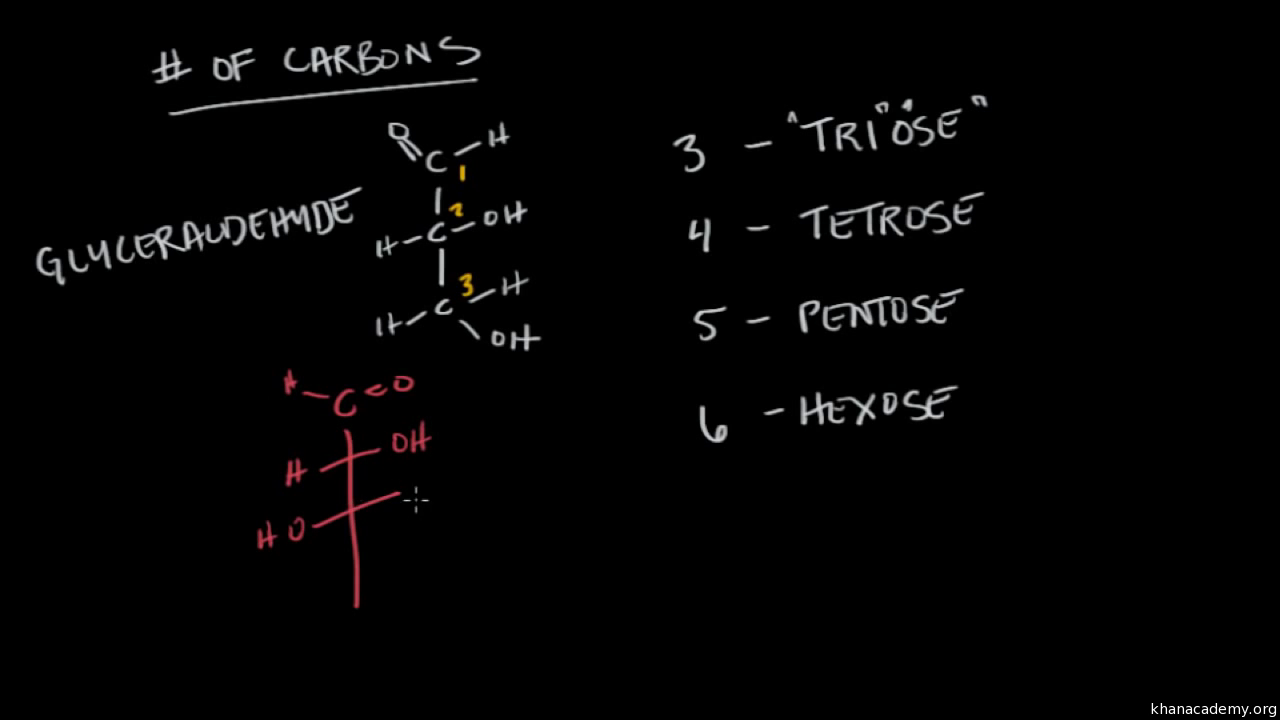 # OF CARBONS
O
C H
1
GLYCERALDEHYDE
2
H C OH
3
H C H
OH
H C = O
H OH
HO
3 - "TRI" "OSE"
4 - TETROSE
5 - PENTOSE
6 - HEXOSE
khanacademy.org